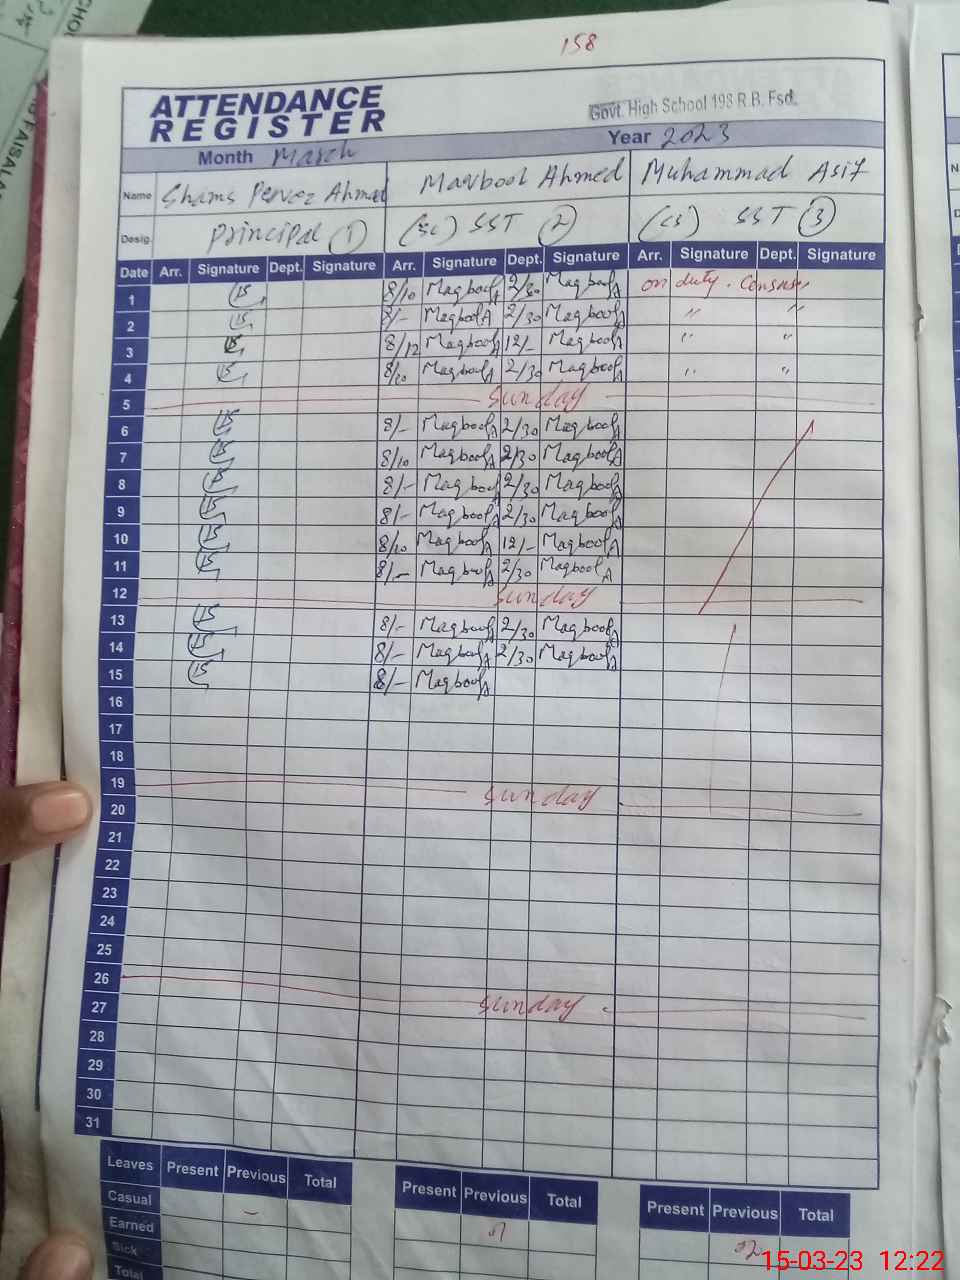 158
ATTENDANCE
REGISTER
Govt. High School 198 R.B. Fsd.
Month March Year 2023
Name Shams Pervez Ahmad Maqbool Ahmed Muhammad Asif
Desig. Principal 1 (Sc) SST 2 (CS) SST 3
Date Arr. Signature Dept. Signature Arr. Signature Dept. Signature Arr. Signature Dept. Signature
1 8/10 MaqboolA 2/30 MaqboolA on duty. Census
2 8/- MaqboolA 2/30 MaqboolA " "
3 8/12 MaqboolA 12/- MaqboolA " "
4 8/10 MaqboolA 2/30 MaqboolA " "
5 Sunday
6 8/- MaqboolA 2/30 MaqboolA
7 8/10 MaqboolA 2/30 MaqboolA
8 8/- MaqboolA 2/30 MaqboolA
9 8/- MaqboolA 2/30 MaqboolA
10 8/10 MaqboolA 12/- MaqboolA
11 8/- MaqboolA 2/30 MaqboolA
12 Sunday
13 8/- MaqboolA 2/30 MaqboolA
14 8/- MaqboolA 2/30 MaqboolA
15 8/- MaqboolA
16
17
18
19 Sunday
20
21
22
23
24
25
26 Sunday
27
28
29
30
31
Leaves Present Previous Total Present Previous Total Present Previous Total
Casual -
Earned
Sick 02
Total
15-03-23 12:22